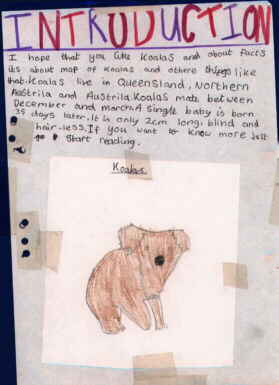 INTRUDUCTION
I hope that you like Koalas and about facts
its about map of Koalas and othere things like
that.Koalas live in Queensland, Northern
Austrila and Austrila.Koalas mate between
December and march.A single baby is born
35 days later.It is only 2cm long, blind and
hair-less.If you want to know more just
go start reading.
Koalas